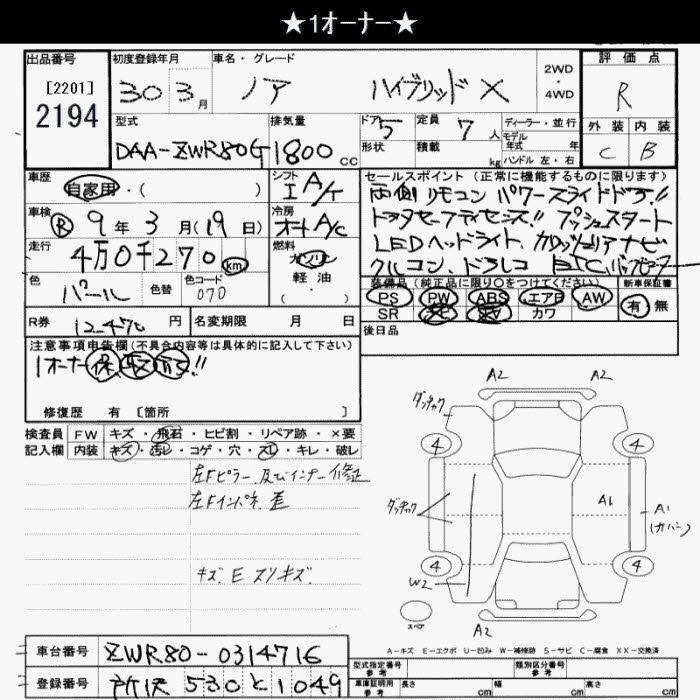 ★1オーナー★
出品番号 初度登録年月 車名・グレード 2WD・4WD 評価点
[2201]
2194
30 3月 ノア ハイブリッド X R
型式 排気量 ドア 定員 ディーラー・並行 外装 内装
DAA-ZWR80G 1800cc 5 7人 モデル年式 年式 C B
形状 積載 kg ハンドル 左・右
車歴 自家用・( ) シフト I A/T
セールスポイント (正常に機能するものに限ります)
両側リモコンパワースライドドア!!
トヨタセーフティセンス!! プッシュスタート
LEDヘッドライト、カロッツェリアナビ
クルコン、ドラレコ ETC バックモニター
車検 (R) 9年3月(19日) 冷房 オートA/C
走行 4万0千270km 燃料 ガソリン 軽・油 ( )
色 パール 色替 色コード 070
装備品 (純正品に限り○をつけてください) 新車保証書
PS PW ABS エアB AW 有 無
SR カワ
R券 12470円 名変期限 月 日
後日品
注意事項申告欄(不具合内容等は具体的に記入して下さい)
1オーナー 保 取
修復歴 有 [箇所 ]
検査員 FW キズ・飛石・ヒビ割・リペア跡・×要
記入欄 内装 キズ・汚レ・コゲ・穴・スレ・キレ・破レ
左Fピラー、及びインナー修正
左Fインパネ、差
キズ、E スリキズ
A2 A2
ダッチャク
4 4
ダッチャク A1 A1
(カバー)
4 4
W2
スペア A2
A-キズ E-エクボ U-凹み W-補修跡 S-サビ C-腐食 XX-交換済
車台番号 ZWR80-0314716
登録番号 所沢 530 と 1049
型式指定番号 参考 類別区分番号 参考
車庫証明用 参考 長さ cm 幅 cm 高さ cm